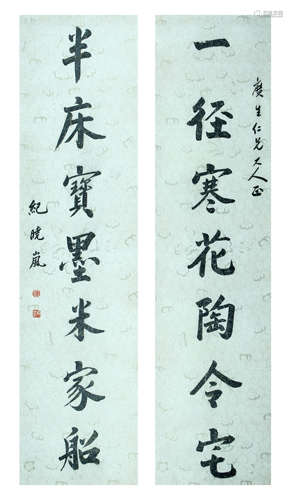 庚生仁兄大人正
一径寒花陶令宅
半床寶墨米家船
紀曉嵐